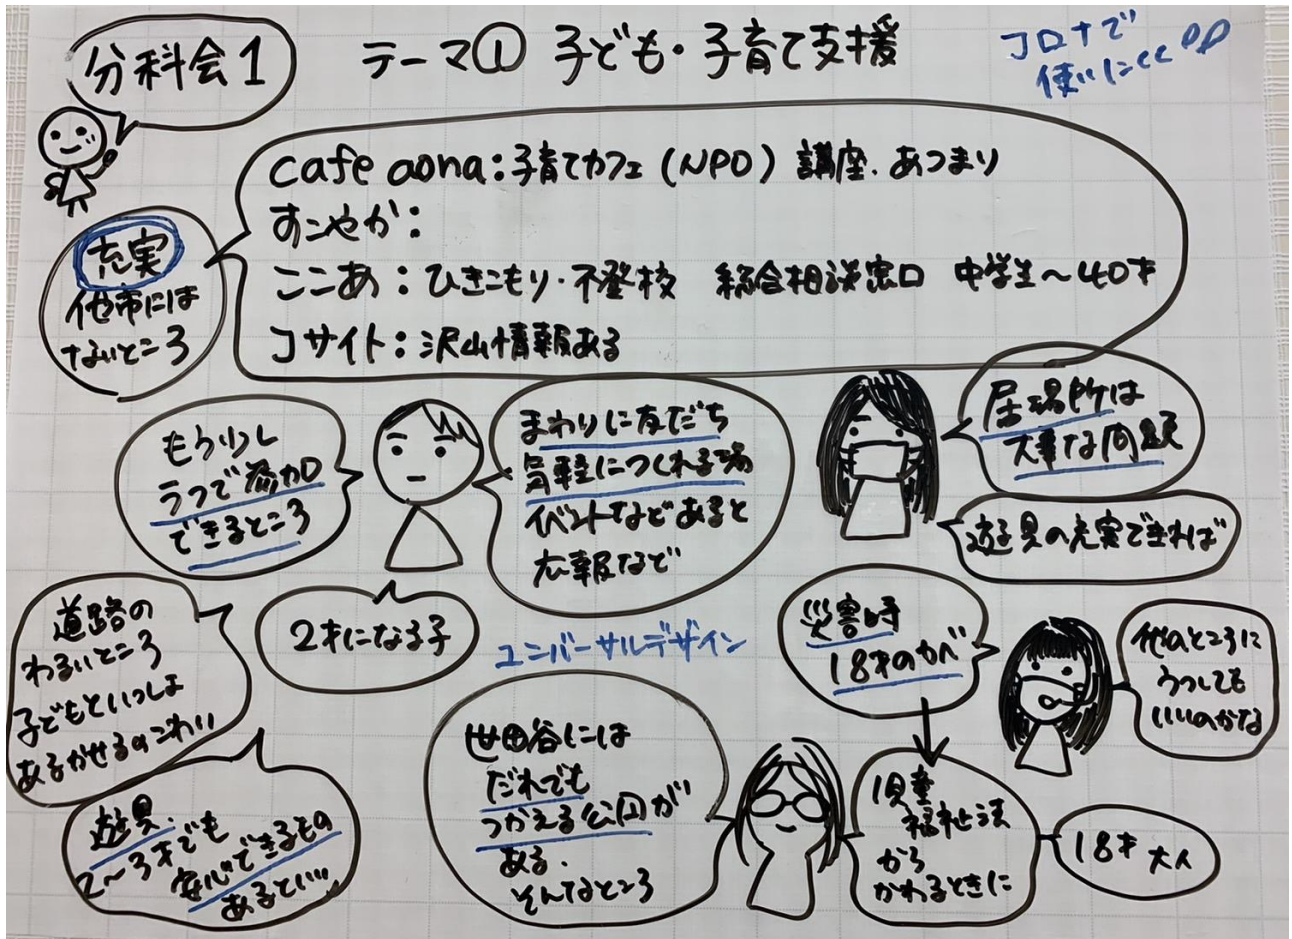 分科会1
テーマ① 子ども・子育て支援
コロナで
使いにくく
cafe aona:子育てカフェ(NPO) 講座.あつまり
すこやか:
ここあ:ひきこもり・不登校 総合相談窓口 中学生〜40才
コサイト:沢山情報ある
充実
他市には
ないところ
もう少し
ラフで参加
できるところ
まわりに友だち
気軽につくれる場
イベントなどあると
広報など
居場所は
大事な問題
遊具の充実できれば
2才になる子
道路の
わるいところ
子どもといっしょ
あるかせるのこわい
遊具.
2〜3才でも
安心できるもの
あるといい
ユニバーサルデザイン
世田谷には
だれでも
つかえる公園が
ある.
そんなところ
災害時
18才のかべ
他のところに
うつしても
いいのかな
児童
福祉法
から
かわるときに
18才 大人